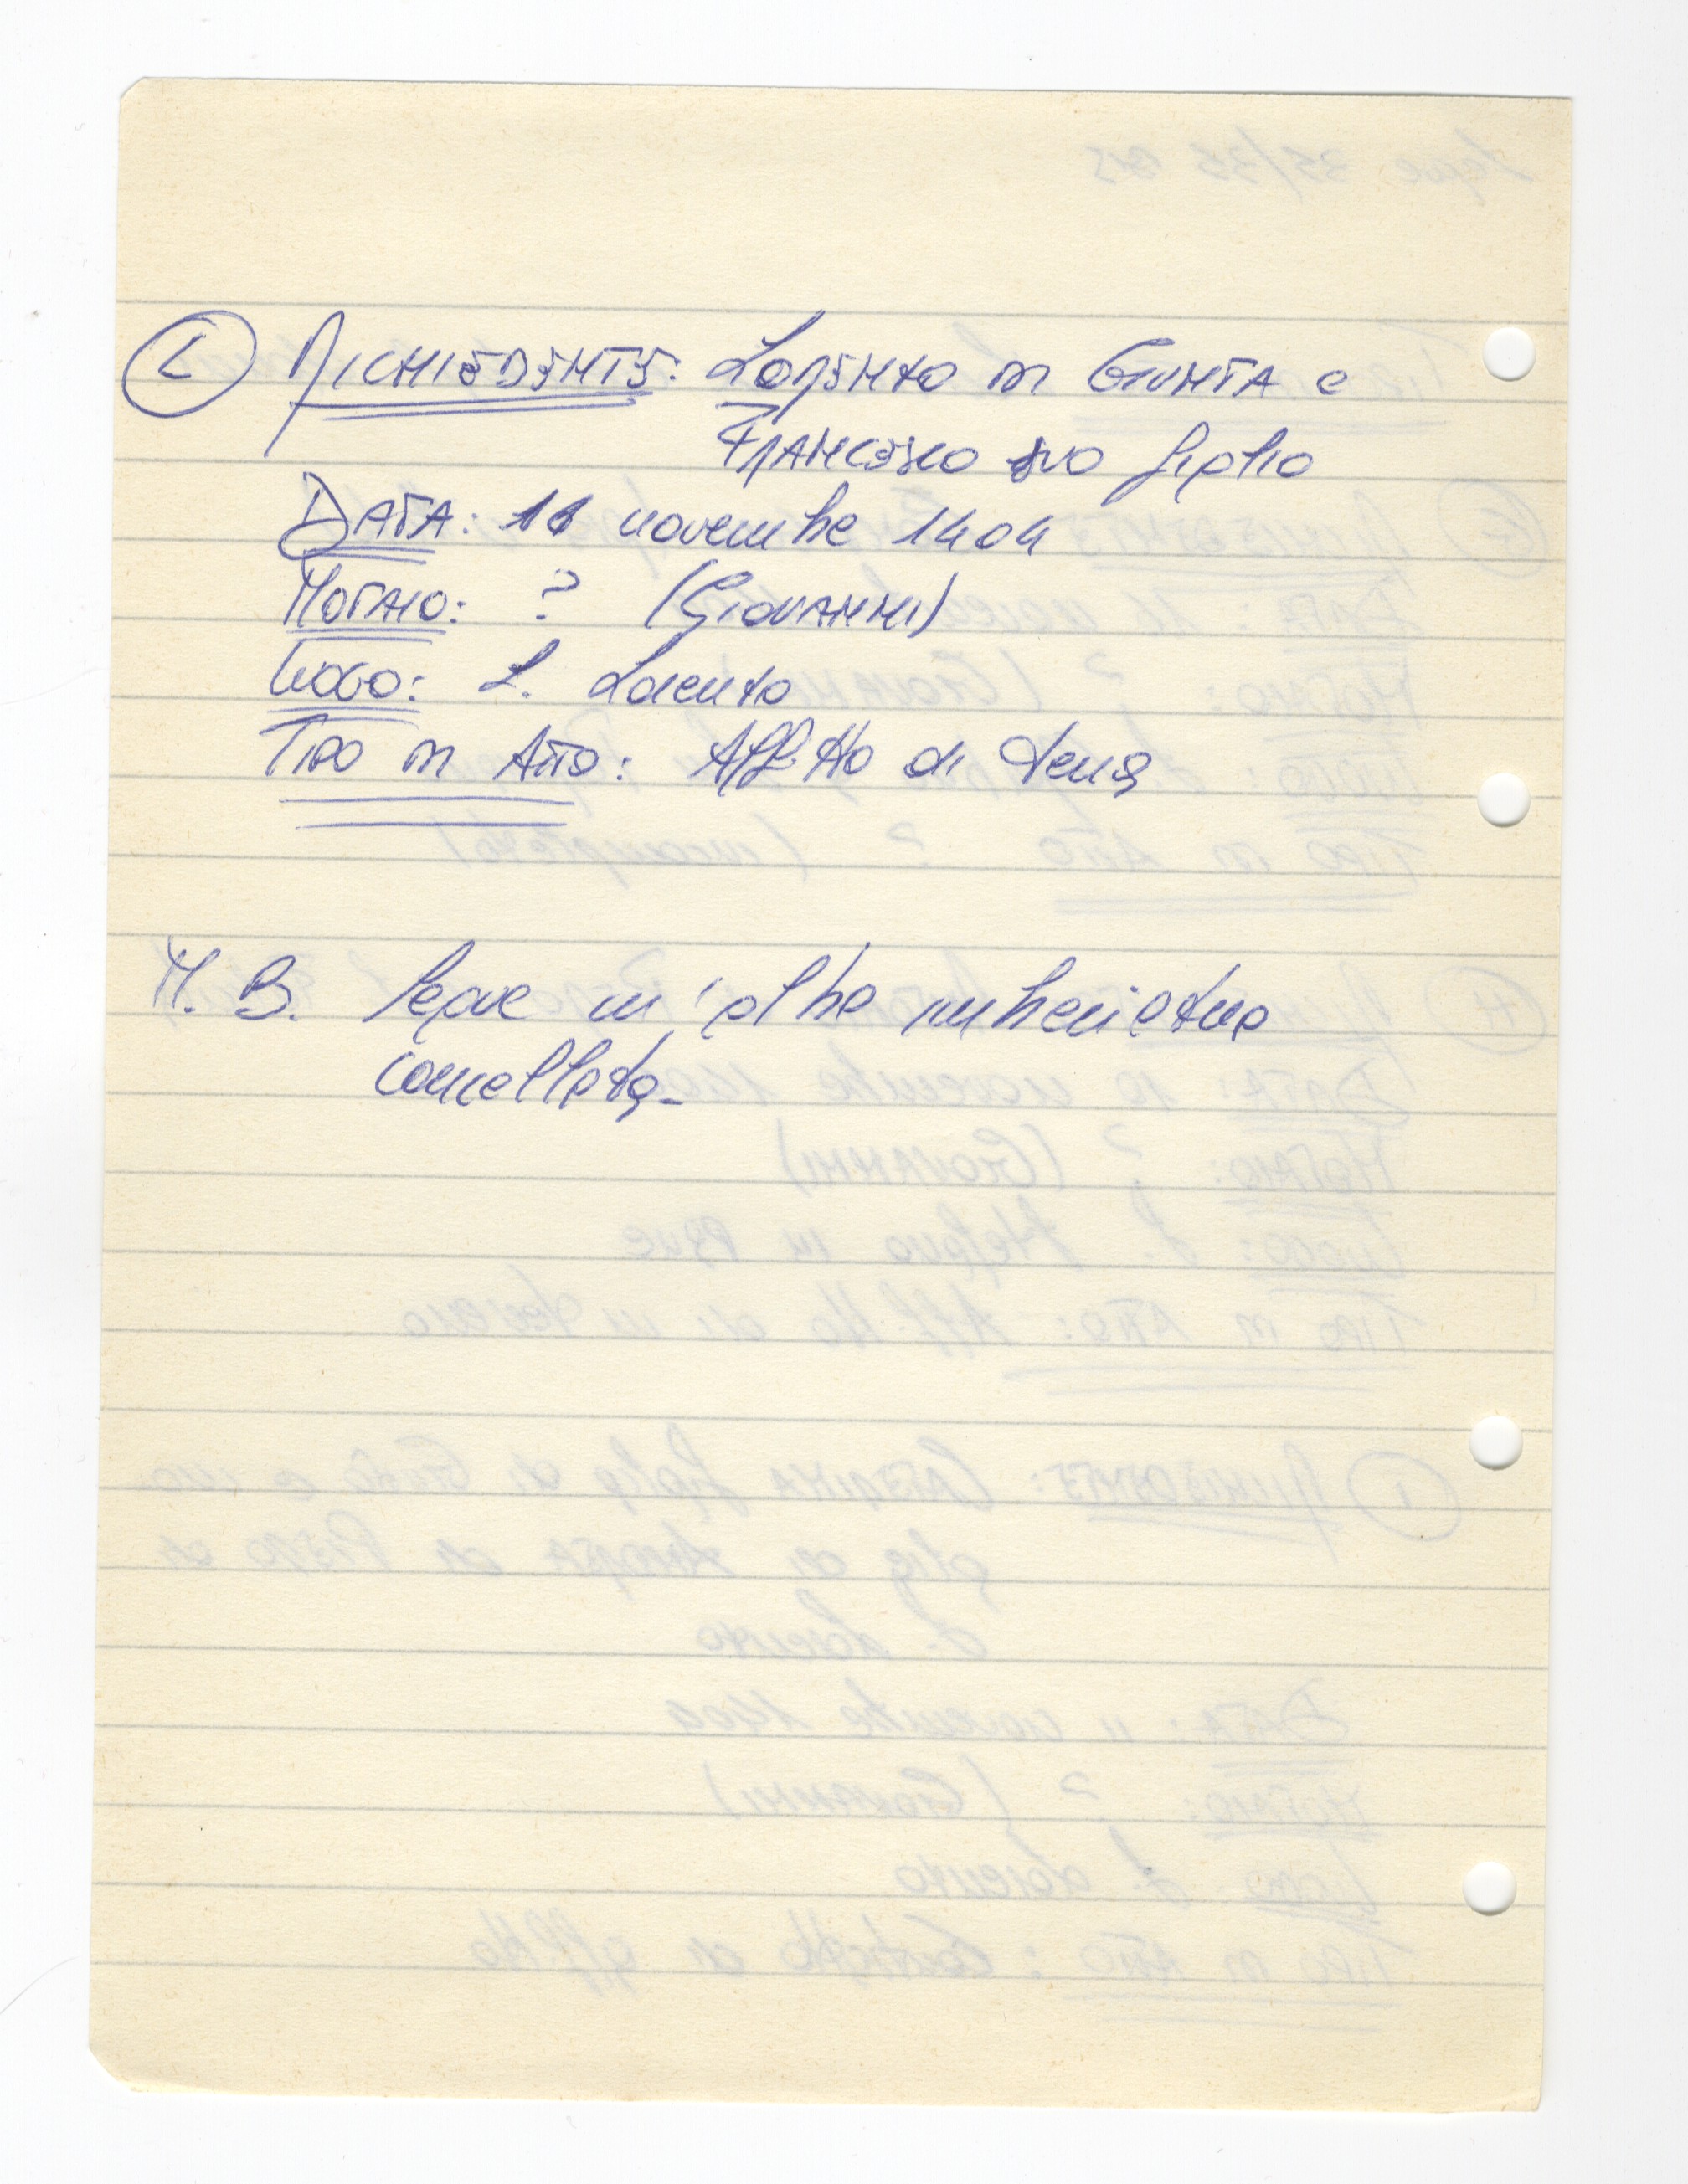 L RICHIEDENTE: LORENZO DI GIUNTA e
FRANCESCO SUO figlio
DATA: 11 novembre 1404
NOTAIO: ? (GIOVANNI)
LUOGO: S. Lorenzo
TIPO DI ATTO: Affitto di terra
N. B. Segue un'altra imbreviatura
cancellata.